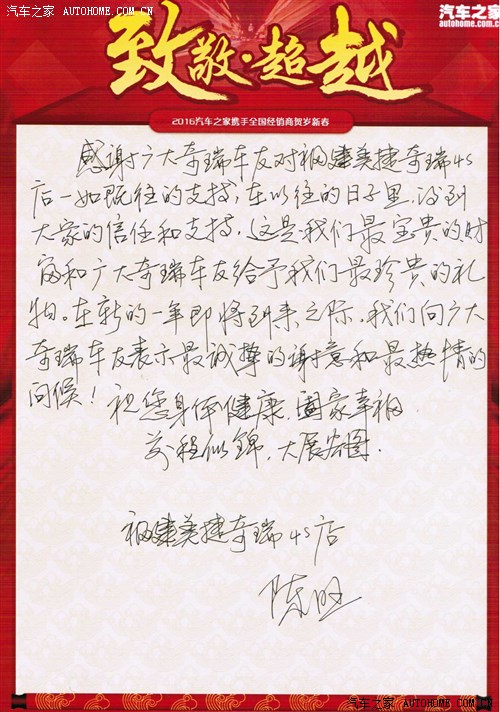 汽车之家 AUTOHOME.COM.CN
汽车之家
autohome.com.cn
致敬·超越
2016汽车之家携手全国经销商贺岁新春
感谢广大奇瑞车友对福建美捷奇瑞4S
店一如既往的支持,在以往的日子里,得到
大家的信任和支持,这是我们最宝贵的财
富和广大奇瑞车友给予我们最珍贵的礼
物。在新的一年即将到来之际,我们向广大
奇瑞车友表示最诚挚的谢意和最热情的
问候!祝您身体健康,阖家幸福
前程似锦,大展宏图.
福建美捷奇瑞4S店
陈旺
汽车之家 AUTOHOME.COM.CN